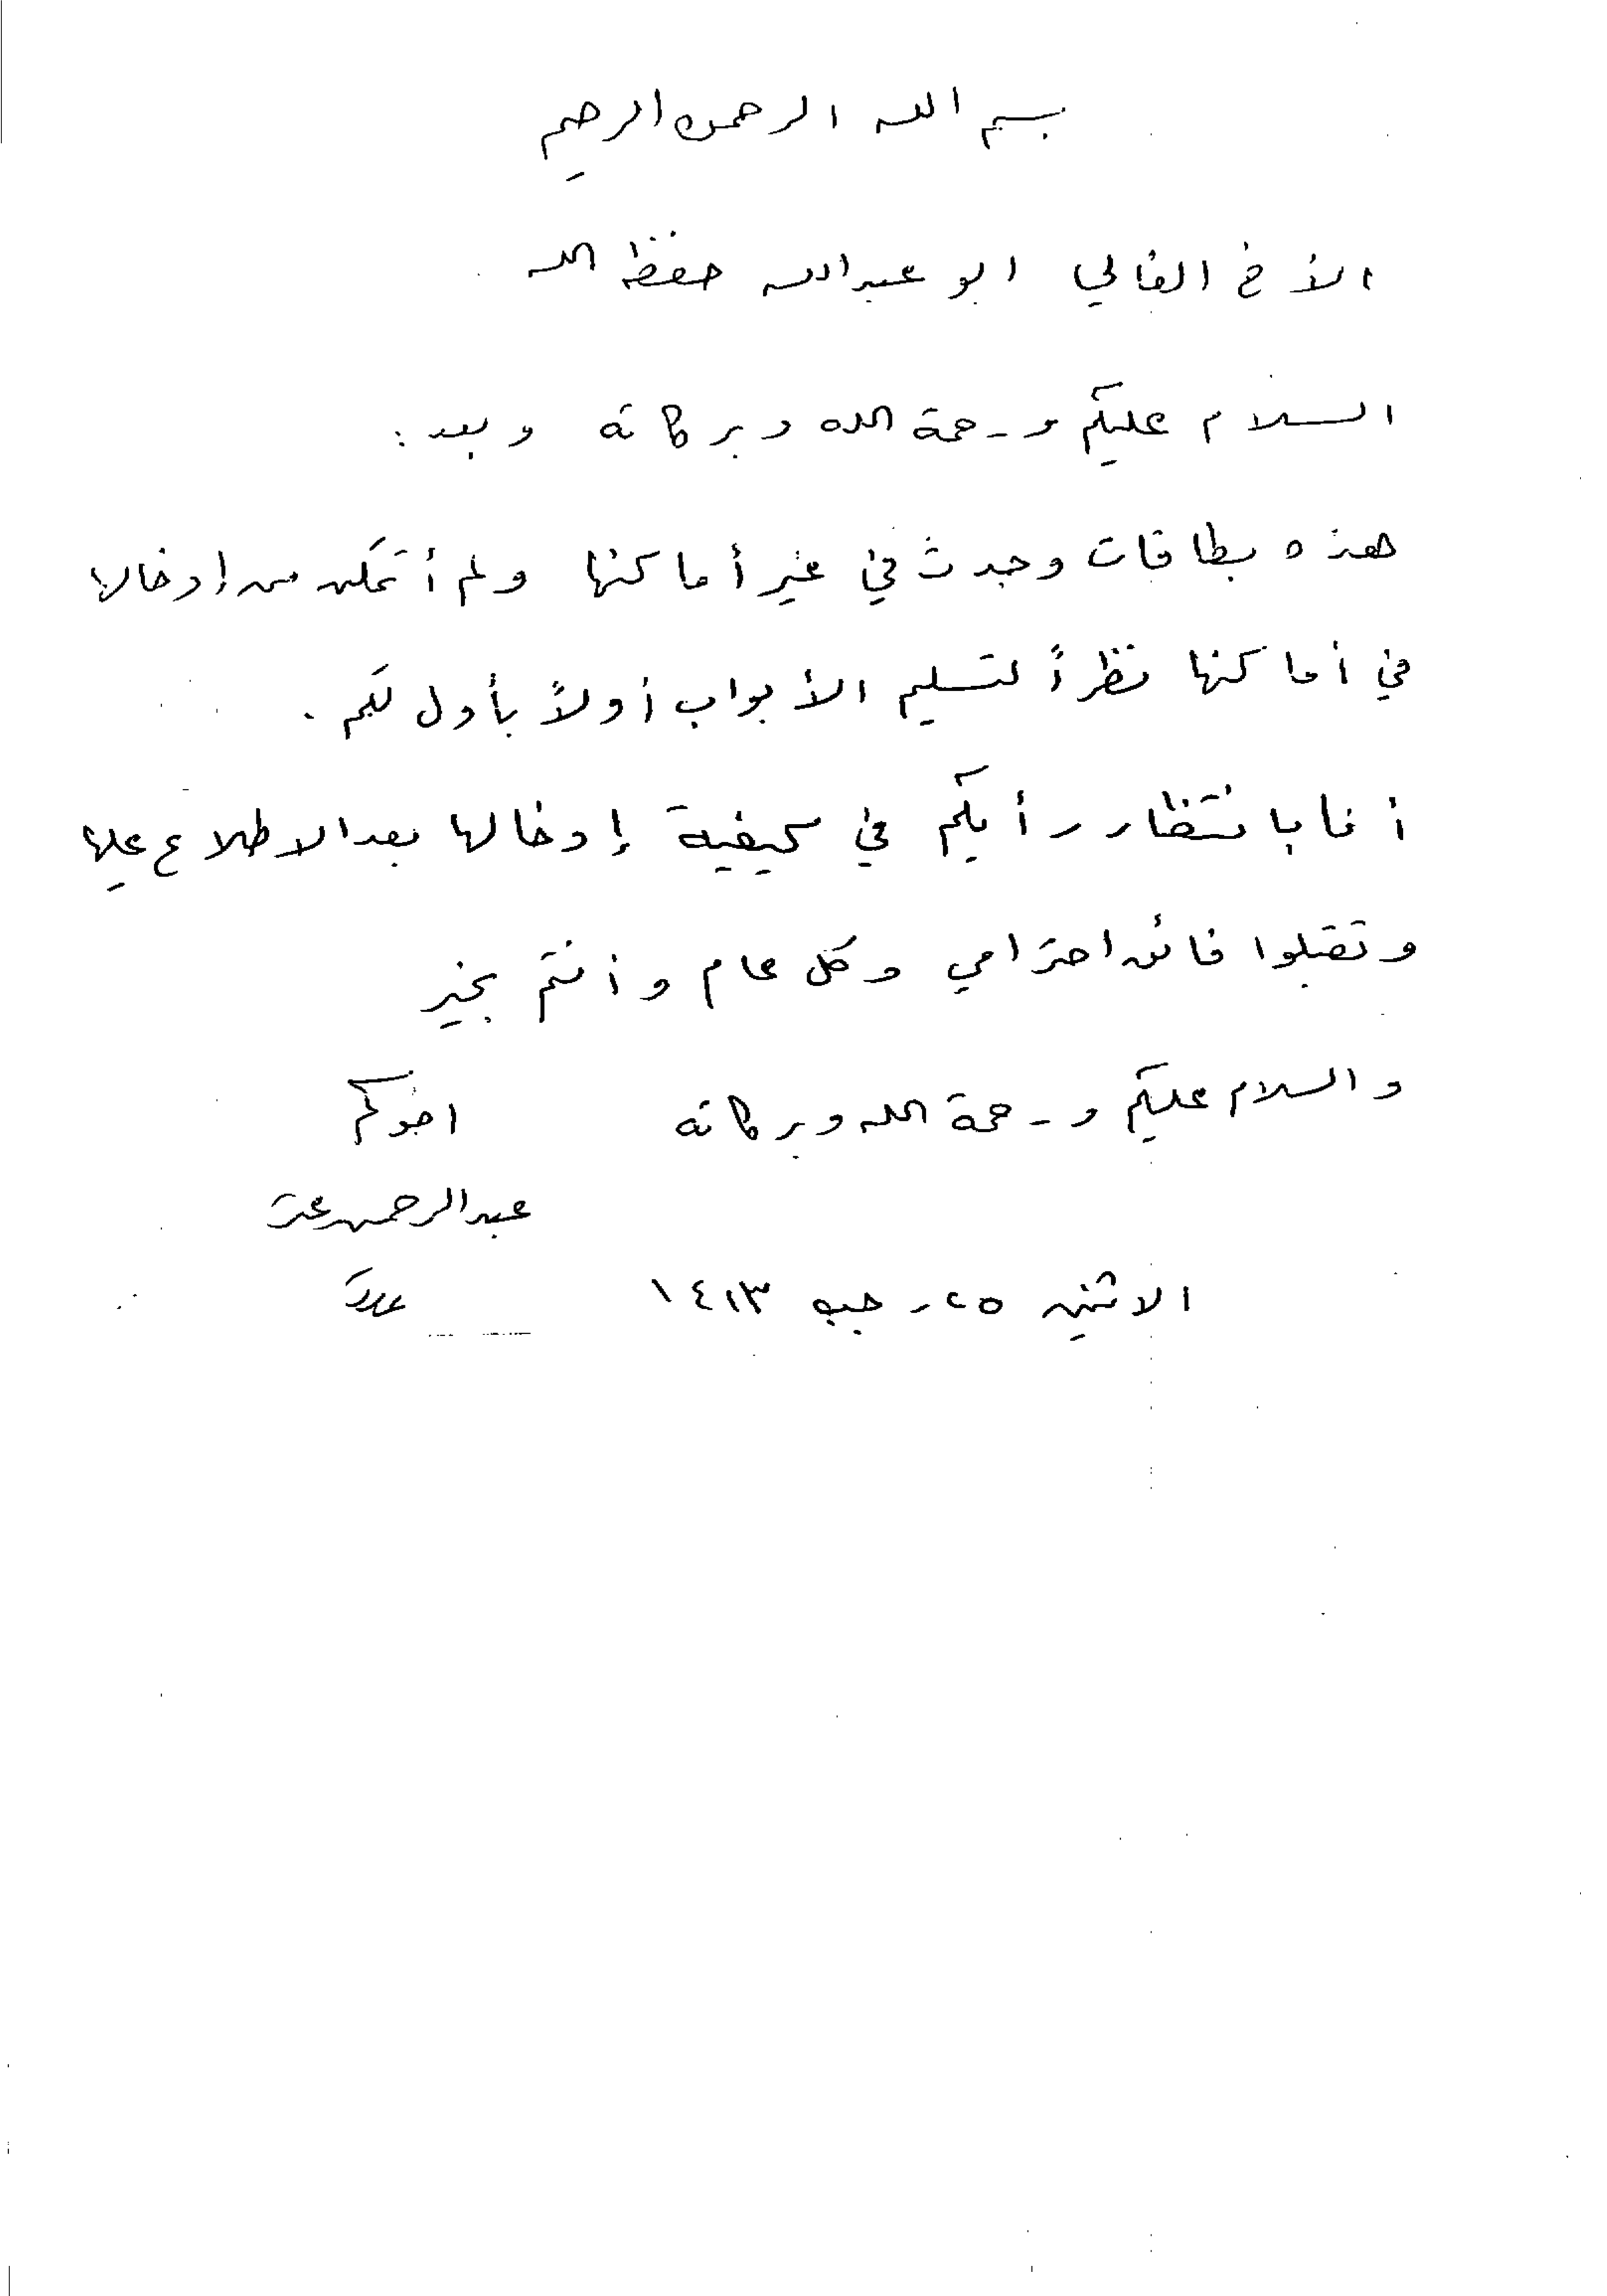 بسم الله الرحمن الرحيم
الأخ الغالي ابو عبدالله حفظه الله
السلام عليكم ورحمة الله وبركاته وبعد :
هذه بطاقات وجدت في غير أماكنها ولم أتمكن من إدخالها
في أماكنها نظراً لتسليم الأبواب أولاً بأول لكم .
أنا بانتظار رأيكم في كيفية إدخالها بعد الاطلاع عليها
وتقبلوا فائق احترامي وكل عام وأنتم بخير
والسلام عليكم ورحمة الله وبركاته اخوكم
عبدالرحمن
الاثنين ٢٥ رجب ١٤١٣